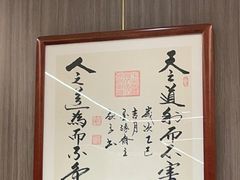 天之道利而不害
人之道為而不爭
歲次乙巳
吉月